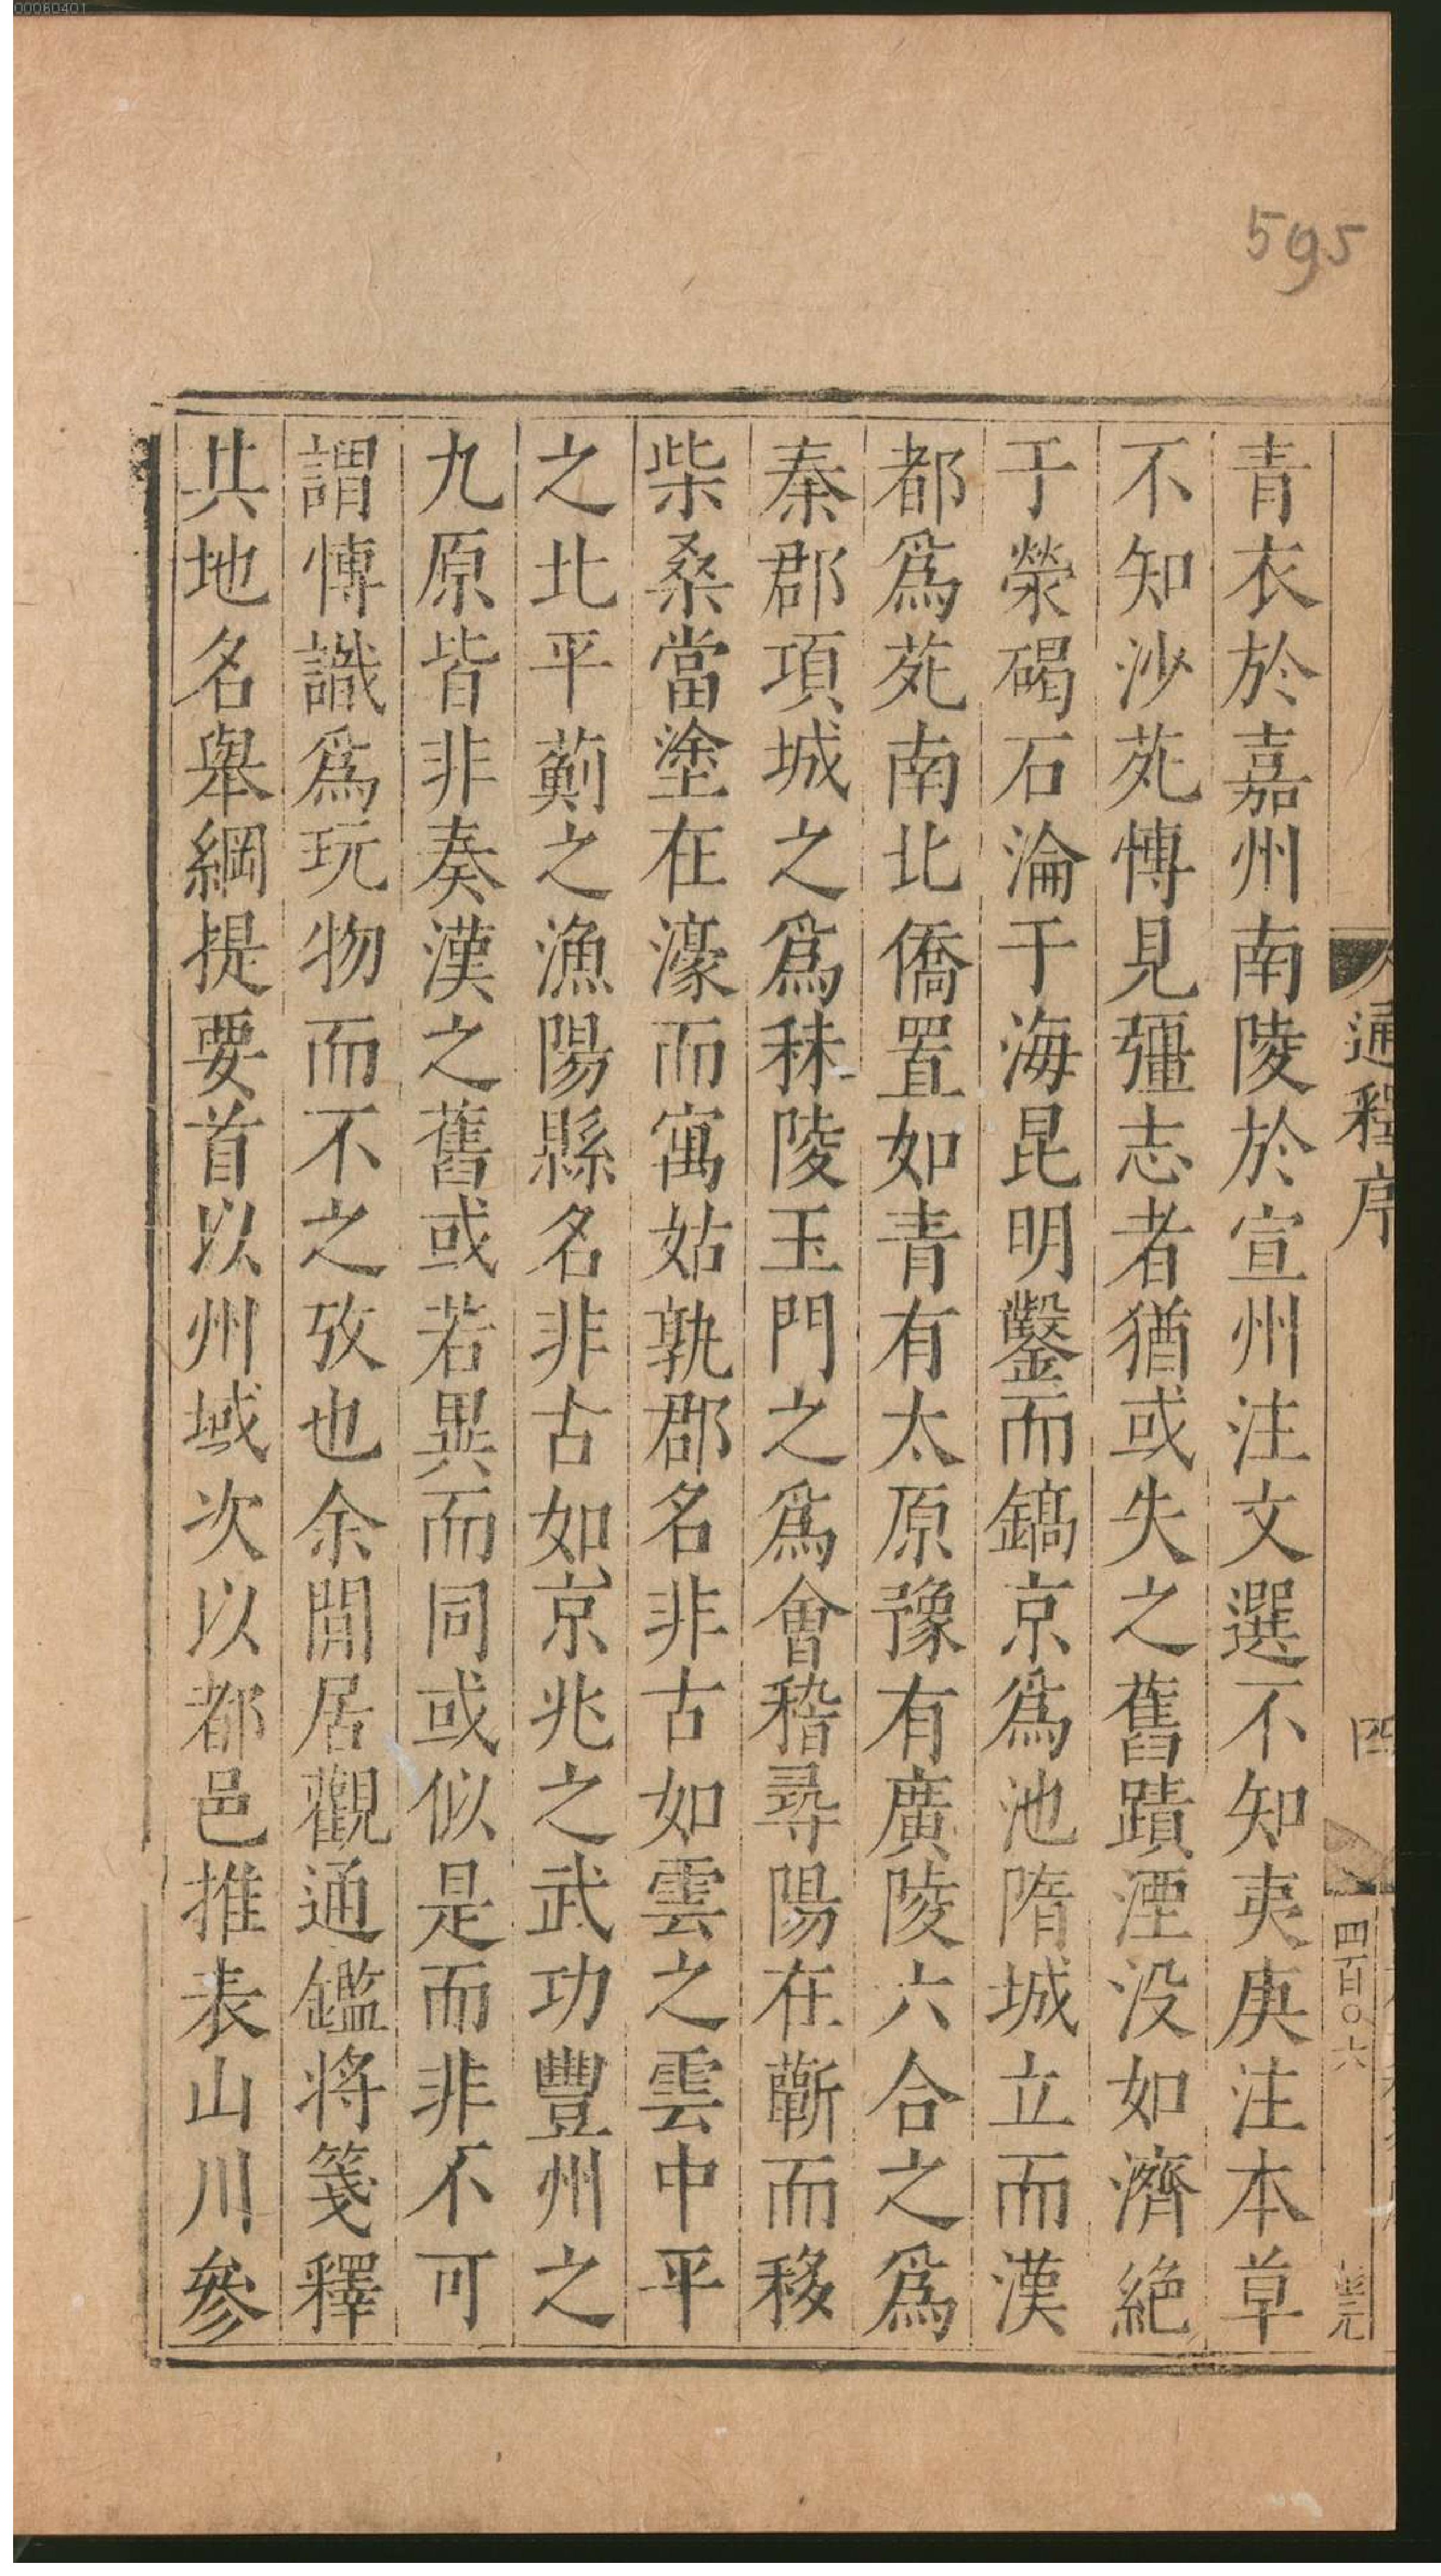 00080401
595
通釋序
四
四百〇六
青衣於嘉州南陵於宣州注文選不知夷庚注本草
不知沙苑愽見彊志者猶或失之舊蹟湮没如濟絶
于滎碣石淪于海昆明鑿而鎬京爲池隋城立而漢
都爲苑南北僑置如青有太原豫有廣陵六合之爲
秦郡項城之爲秣陵玉門之爲會稽尋陽在蘄而移
柴桑當塗在濠而寓姑孰郡名非古如雲之雲中平
之北平薊之漁陽縣名非古如京兆之武功豐州之
九原皆非奏漢之舊或若異而同或似是而非不可
謂愽識爲玩物而不之攷也余閒居觀通鑑將箋釋
共地名舉綱提要首以州域次以都邑推表山川參